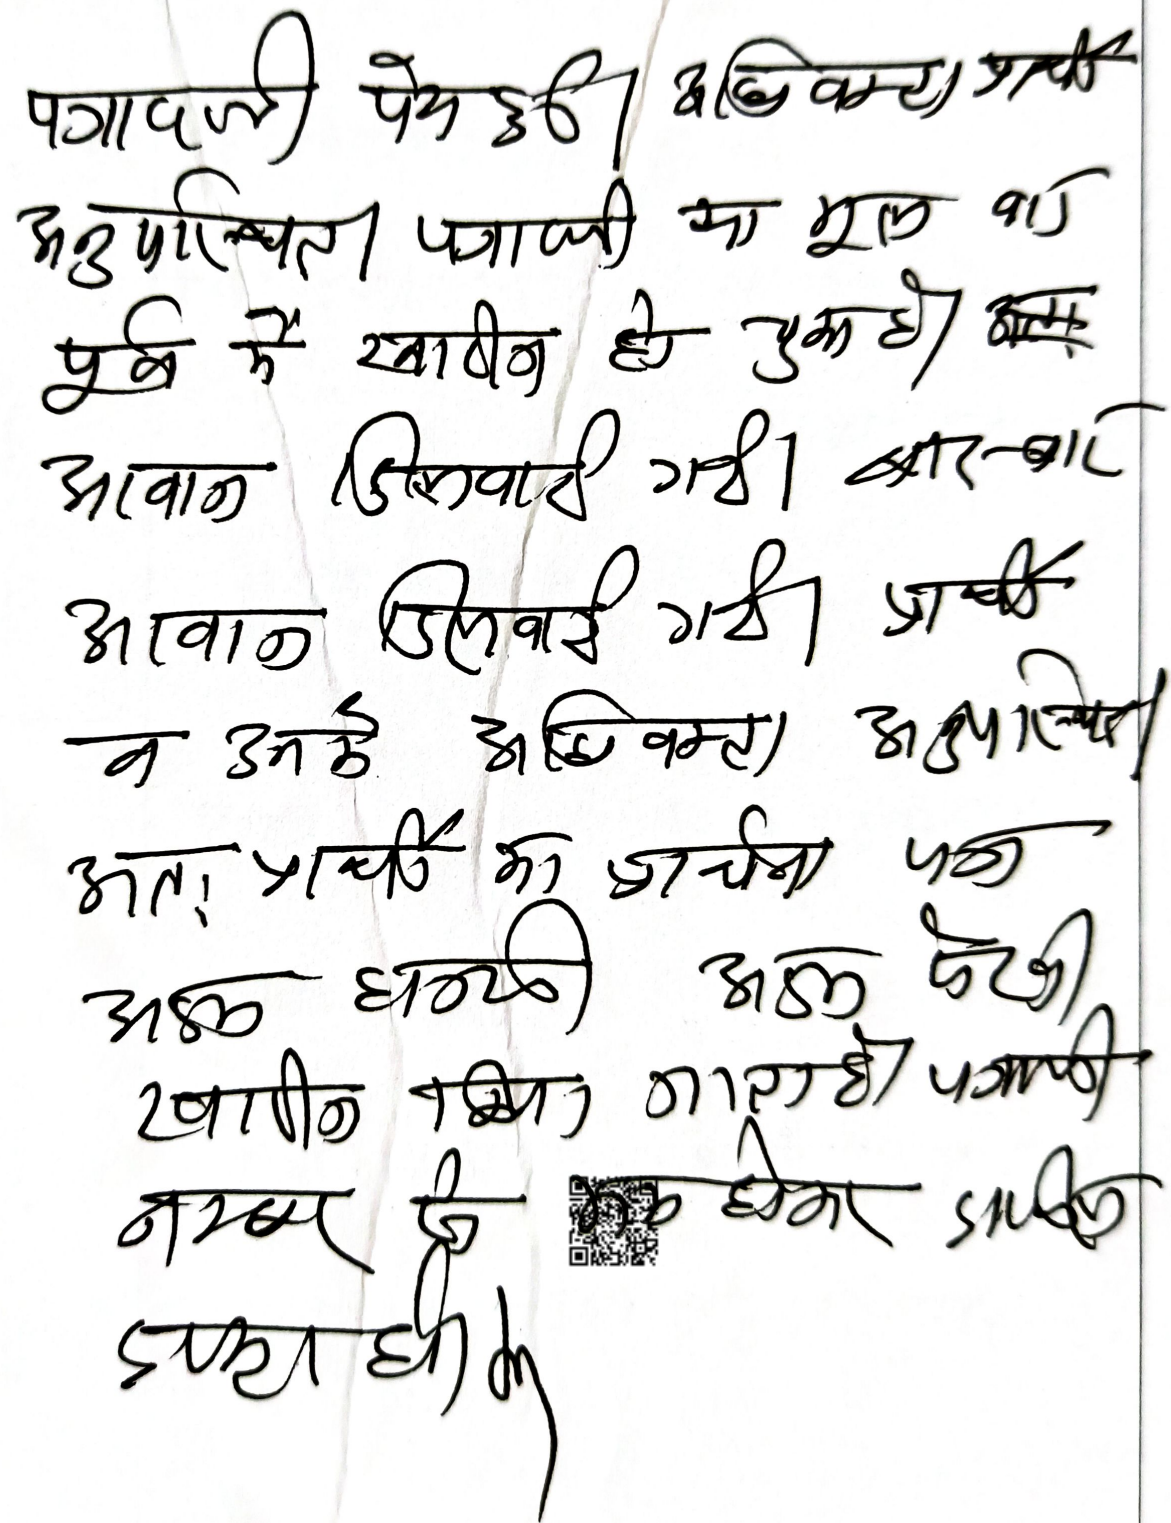 पत्रावली पेश हुई। अधिवक्ता प्रार्थी
अनुपस्थित। पत्रावली का मूल वाद
पूर्व में खारीज हो चुका है। अतः
आवाज दिलवाई गयी। बार-बार
आवाज दिलवाई गयी। प्रार्थी
व उनके अधिवक्ता अनुपस्थित।
अतः प्रार्थी का प्रार्थना पत्र
अदम हाजरी अदम पैरवी
खारीज किया जाता है। पत्रावली
नम्बर से कम होकर दाखिल
दफ्तर हो।